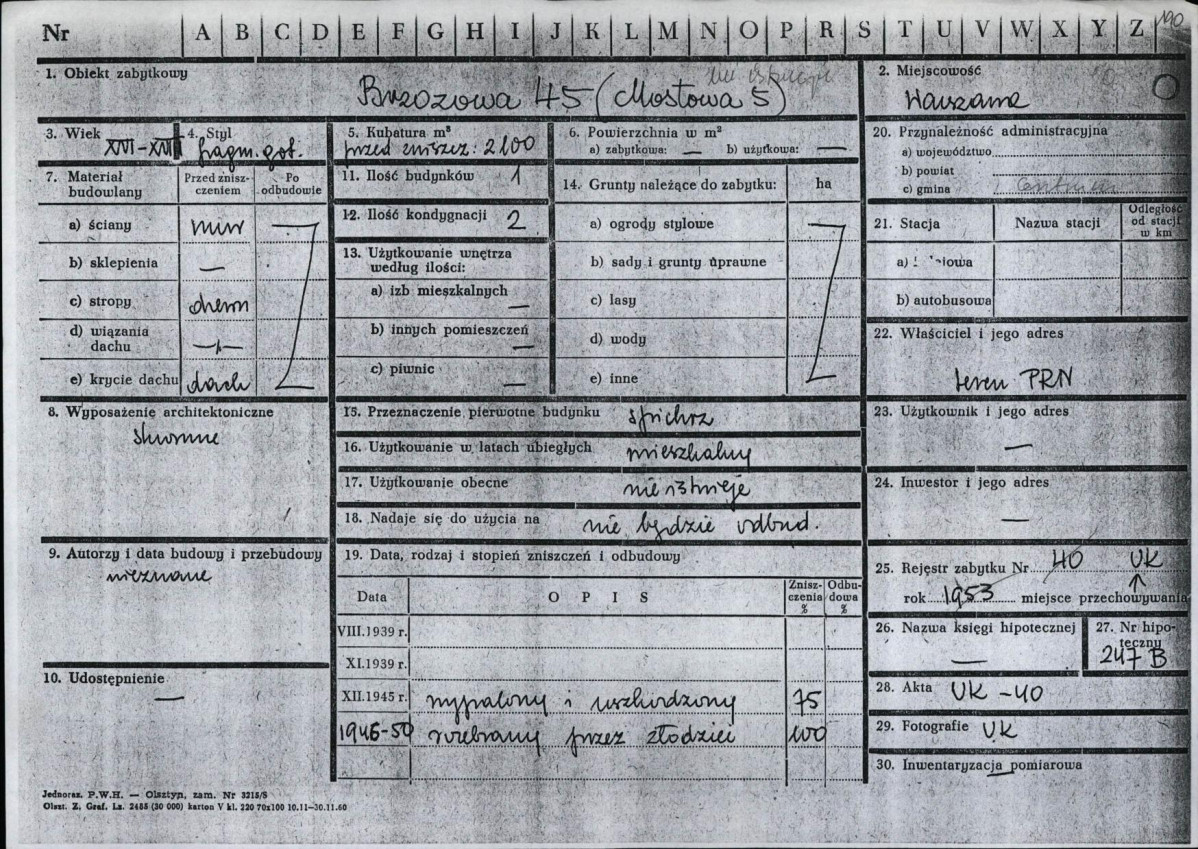 Nr A B C D E F G H I J K L M N O P R S T U V W X Y Z 190
1. Obiekt zabytkowy
Brzozowa 45 (Mostowa 5)
2. Miejscowość
Warszawa
3. Wiek
XVI-XVII
4. Styl
fragm. got.
5. Kubatura m³
przed zniszcz: 2100
6. Powierzchnia w m²
a) zabytkowa: — b) użytkowa: —
7. Materiał budowlany
Przed zniszczeniem
Po odbudowie
a) ściany mur
b) sklepienia —
c) stropy drewn
d) wiązania dachu —"—
e) krycie dachu dach
8. Wyposażenie architektoniczne
skromne
9. Autorzy i data budowy i przebudowy
nieznane
10. Udostępnienie
—
11. Ilość budynków 1
12. Ilość kondygnacji 2
13. Użytkowanie wnętrza według ilości:
a) izb mieszkalnych —
b) innych pomieszczeń —
c) piwnic —
14. Grunty należące do zabytku: ha
a) ogrody stylowe
b) sady i grunty uprawne
c) lasy
d) wody
e) inne
15. Przeznaczenie pierwotne budynku spichrz
16. Użytkowanie w latach ubiegłych mieszkalny
17. Użytkowanie obecne nie istnieje
18. Nadaje się do użycia na nie będzie odbud.
19. Data, rodzaj i stopień zniszczeń i odbudowy
Data OPIS Zniszczenia % Odbudowa %
VIII.1939 r.
XI.1939 r.
XII.1945 r. wypalony i uszkodzony 75
1946-50 rozebrany przez złodziei 100
20. Przynależność administracyjna
a) województwo
b) powiat
c) gmina
21. Stacja Nazwa stacji Odległość od stacji w km
b) autobusowa
22. Właściciel i jego adres
teren PRN
23. Użytkownik i jego adres
—
24. Inwestor i jego adres
—
25. Rejestr zabytku Nr 40 UK
rok 1953 miejsce przechowywania
26. Nazwa księgi hipotecznej
—
27. Nr hipoteczny
247 B
28. Akta UK-40
29. Fotografie UK
30. Inwentaryzacja pomiarowa
—
Jednoraz. P.W.H. — Olsztyn, zam. Nr 3215/S
Olszt. Z. Graf. Lz. 2485 (30 000) karton V kl. 220 70x100 10.11—30.11.60